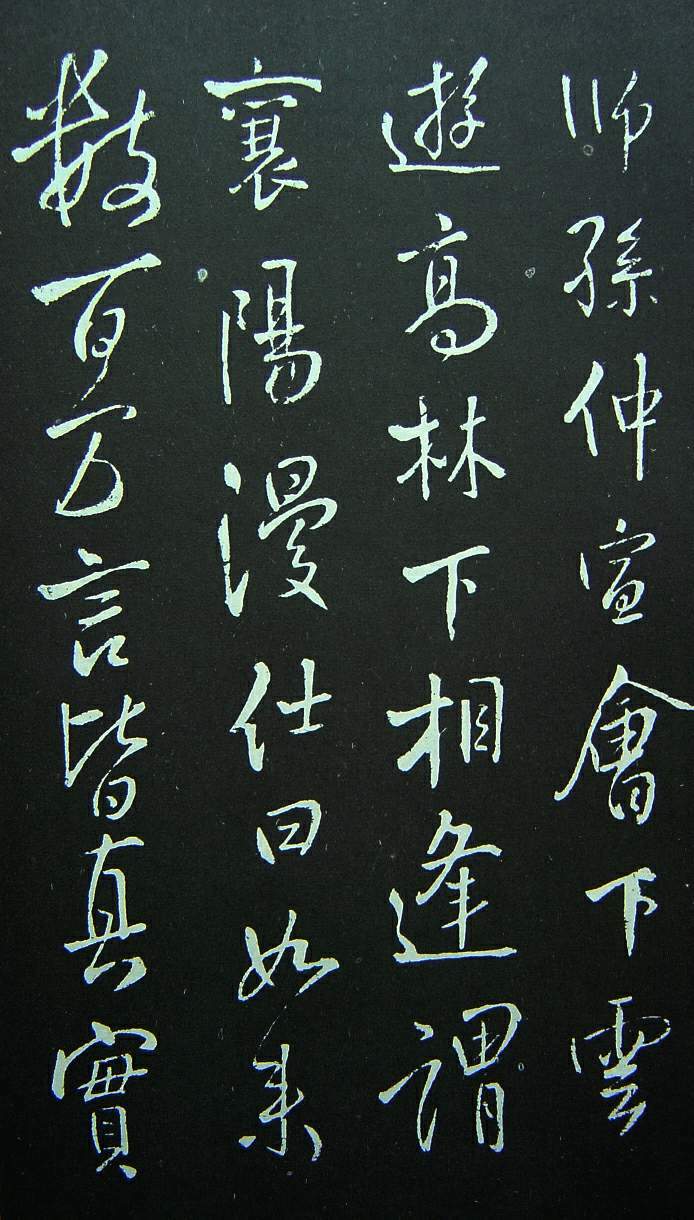 師孫仲宣會下雲
遊高林下相逢謂
襄陽漫仕曰如來
數百万言皆真實